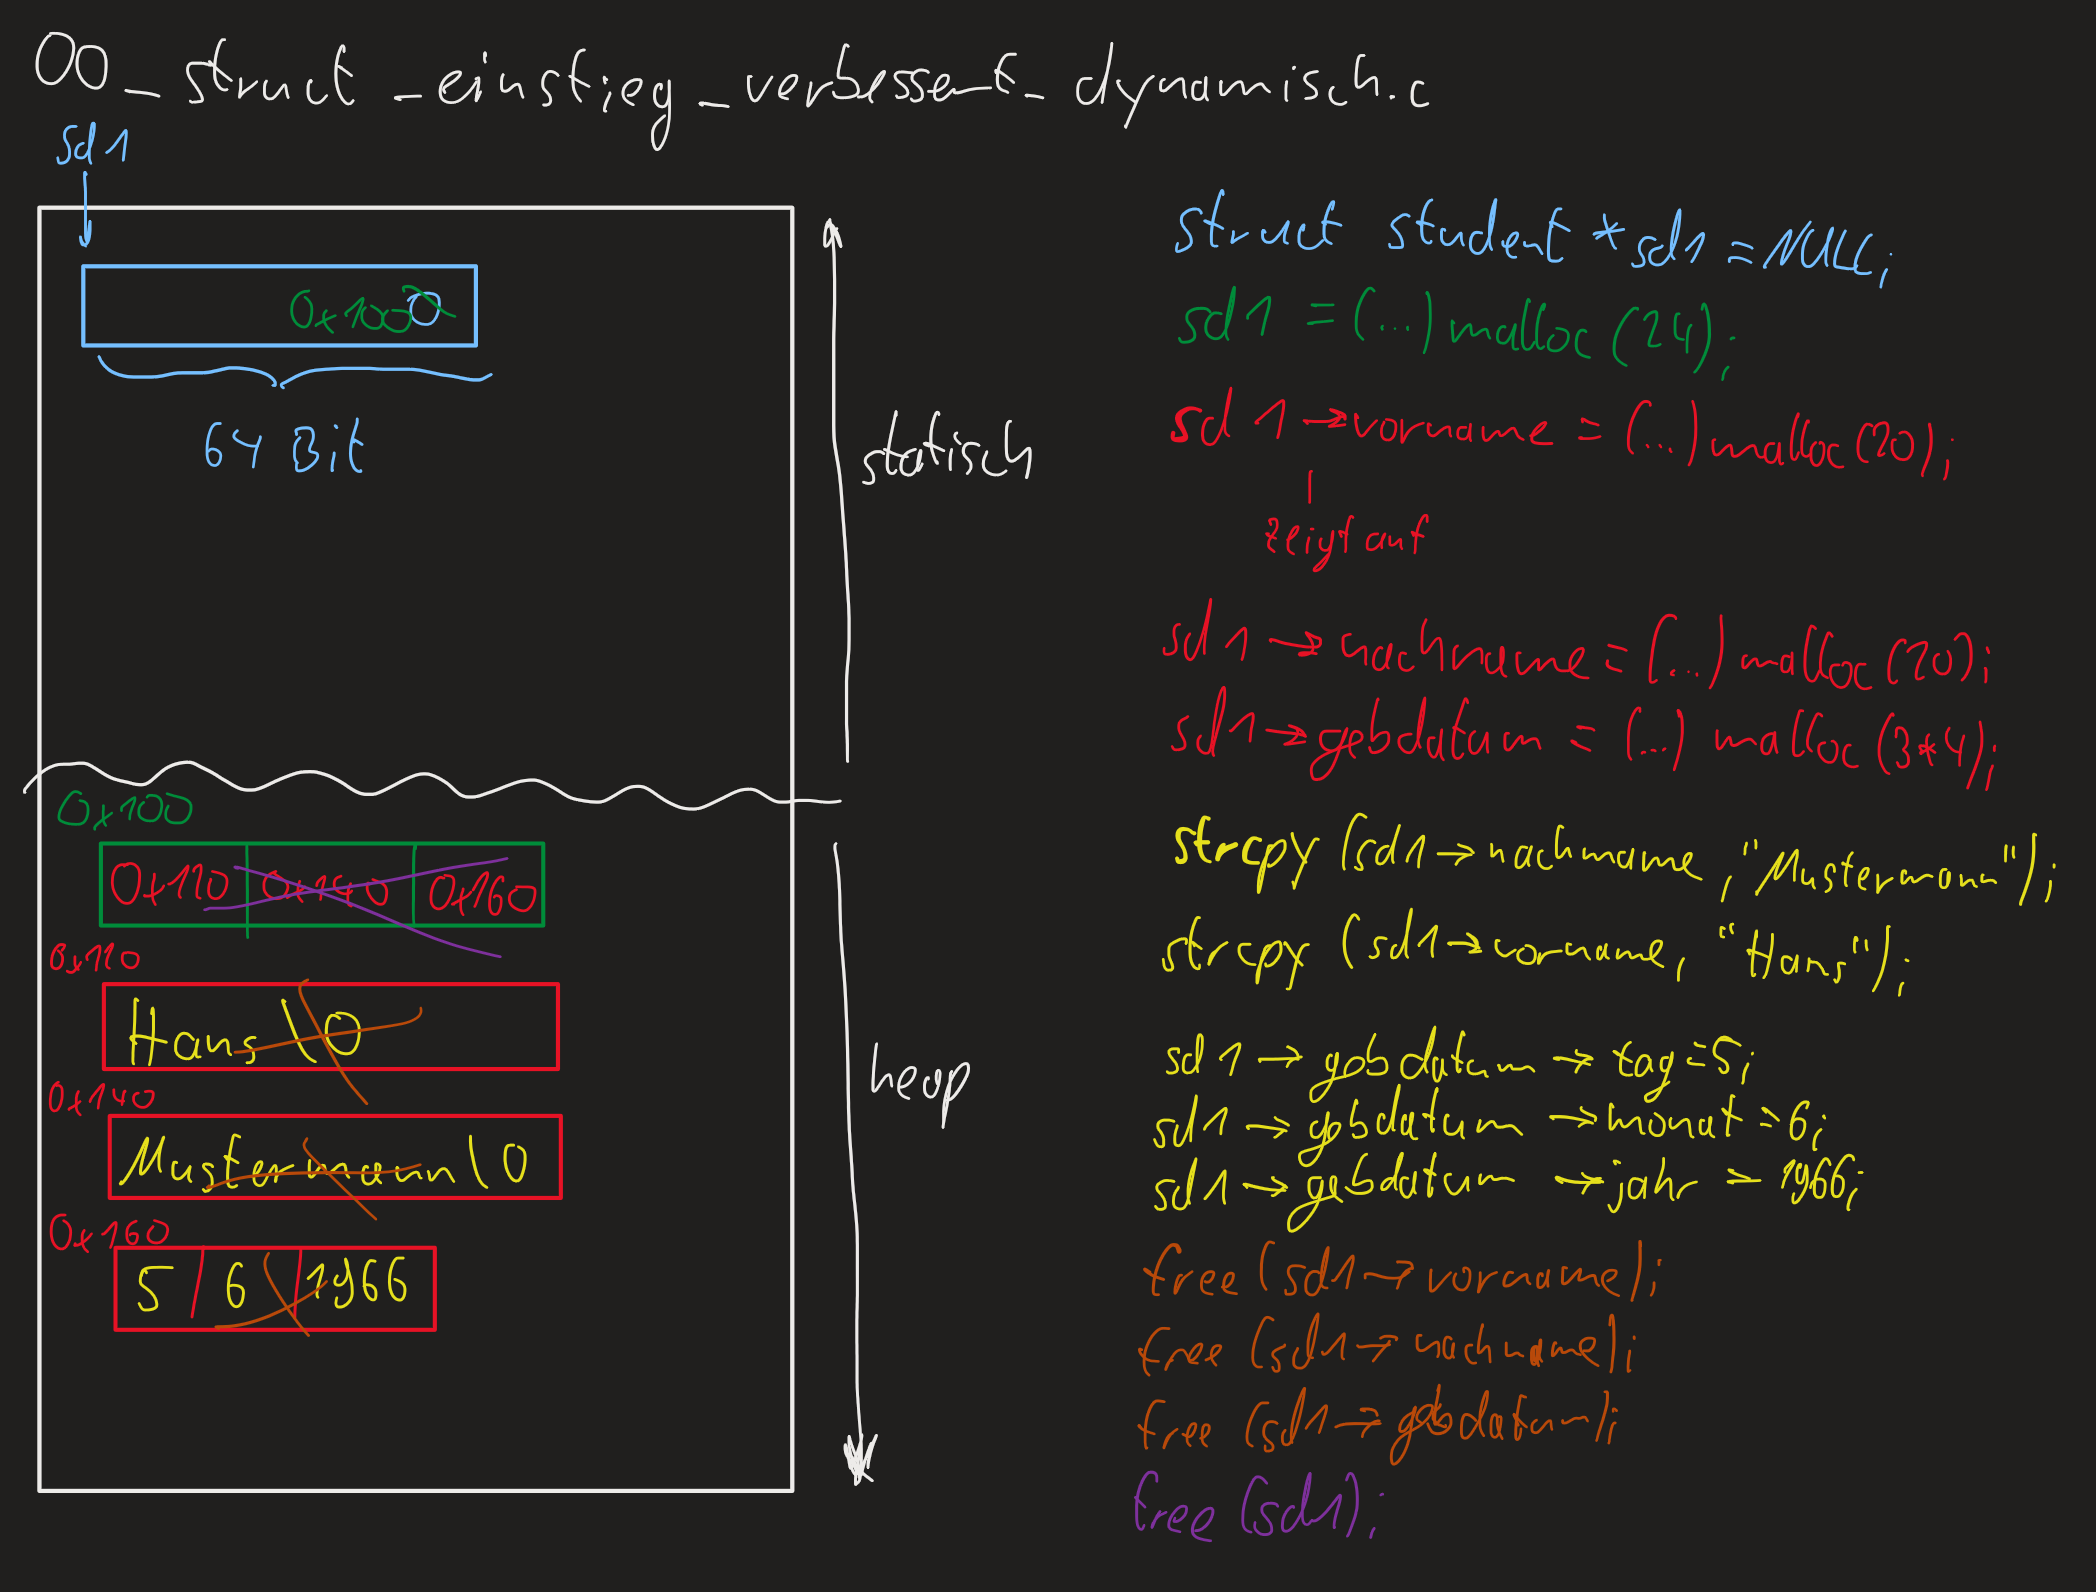 00_struct_einstieg_verbessert_dynamisch.c
sd1
0x100 0
64 Bit
statisch
0x100
0x110 0x140 0x160
0x110
Hans\0
0x140
Mustermann\0
0x160
5 6 1966
heap
struct student *sd1 = NULL;
sd1 = (...) malloc (24);
sd1 → vorname = (...) malloc (20);
zeigt auf
sd1 → nachname = (...) malloc (20);
sd1 → gebdatum = (...) malloc (3*4);
strcpy (sd1 → nachname, "Mustermann");
strcpy (sd1 → vorname, "Hans");
sd1 → gebdatum → tag = 5;
sd1 → gebdatum → monat = 6;
sd1 → gebdatum → jahr = 1966;
free (sd1 → vorname);
free (sd1 → nachname);
free (sd1 → gebdatum);
free (sd1);